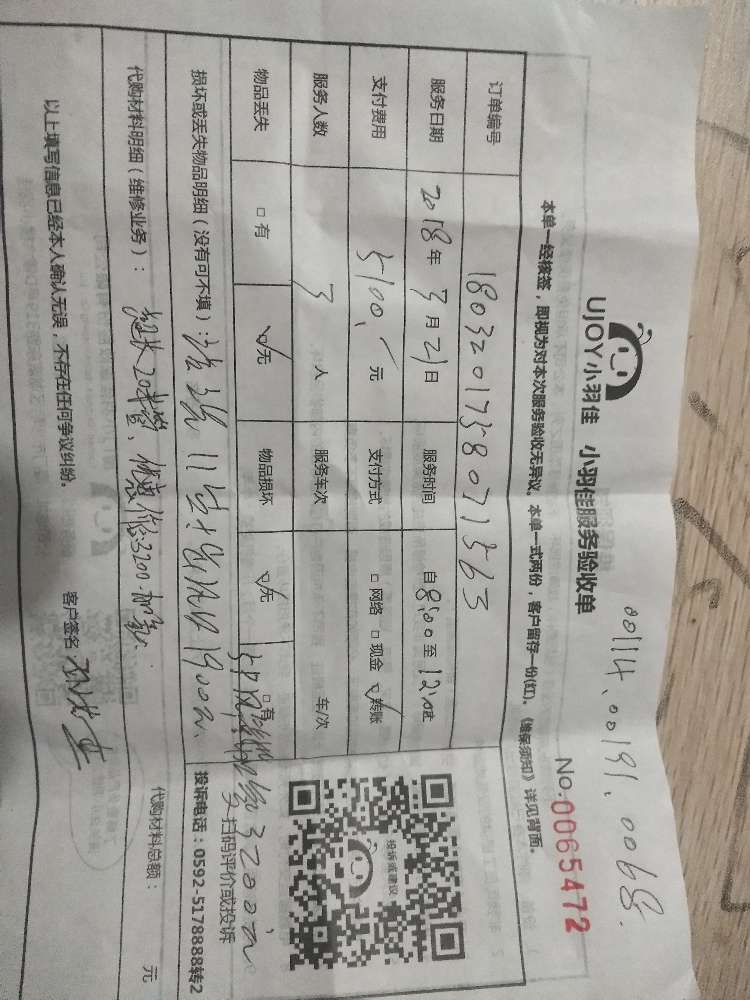 00114.00191.0068.
UJOY小羽佳 小羽佳服务验收单
No:0065472
本单一经核签，即视为对本次服务验收无异议。本单一式两份，客户留存一份(红)。《维保须知》详见背面。
订单编号 1803201738071563
服务日期 2018年3月21日 服务时间 自8:00至12:00止
支付费用 5100.元 支付方式 □网络 □现金 ☑转账
服务人数 3 人 服务车次 车/次
物品丢失 □有 ☑无 物品损坏 ☑无 □有
投诉或建议
扫码评价或投诉
投诉电话：0592-5178888转2
损坏或丢失物品明细（没有可不填）：1900元
3200元
代购材料明细（维修业务）：超长20米管、优惠价3200
代购材料总额： 元
以上填写信息已经本人确认无误，不存在任何争议纠纷。
客户签名